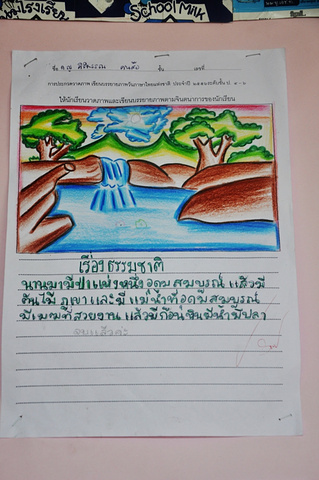 โรงเรียน School Milk
ชื่อ ด.ญ. ชั้น เลขที่
การประกวดวาดภาพ เขียนบรรยายภาพวันภาษาไทยแห่งชาติ ประจำปี ระดับชั้น ป.
ให้นักเรียนวาดภาพและเขียนบรรยายภาพตามจินตนาการของนักเรียน
เรื่องธรรมชาติ
นานมามีป่าแห่งหนึ่งอุดมสมบูรณ์ แล้วมี
ต้นไม้ ภูเขา และมี แม่น้ำที่อุดมสมบูรณ์
มีเมฆที่สวยงาน แล้วมีก้อนหินมีน้ำมีปลา
จบแล้วค่ะ